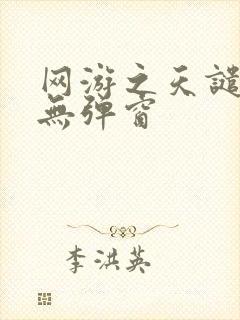 网游之天譴
無弹窗
李洪英